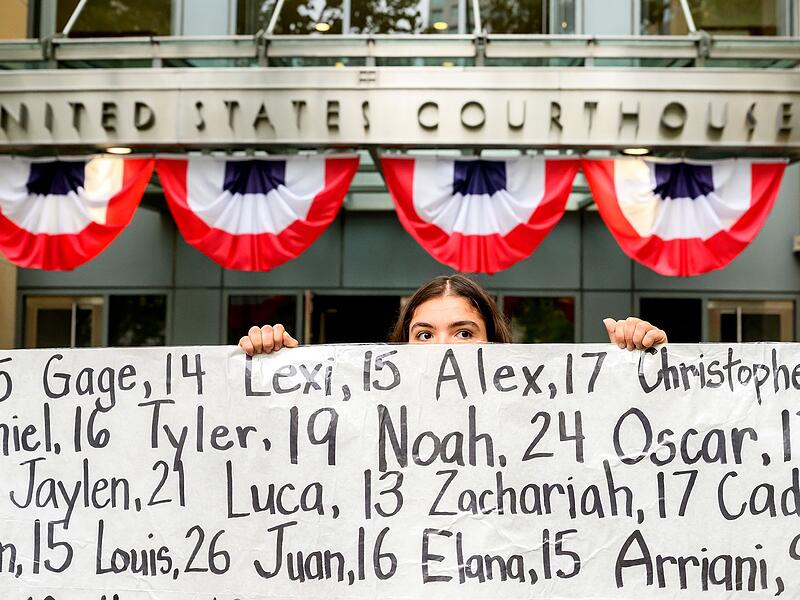 UNITED STATES COURTHOUSE
5 Gage, 14 Lexi, 15 Alex, 17 Christophe
niel, 16 Tyler, 19 Noah, 24 Oscar, 1
Jaylen, 21 Luca, 13 Zachariah, 17 Cad
n, 15 Louis, 26 Juan, 16 Elana, 15 Arriani, 9